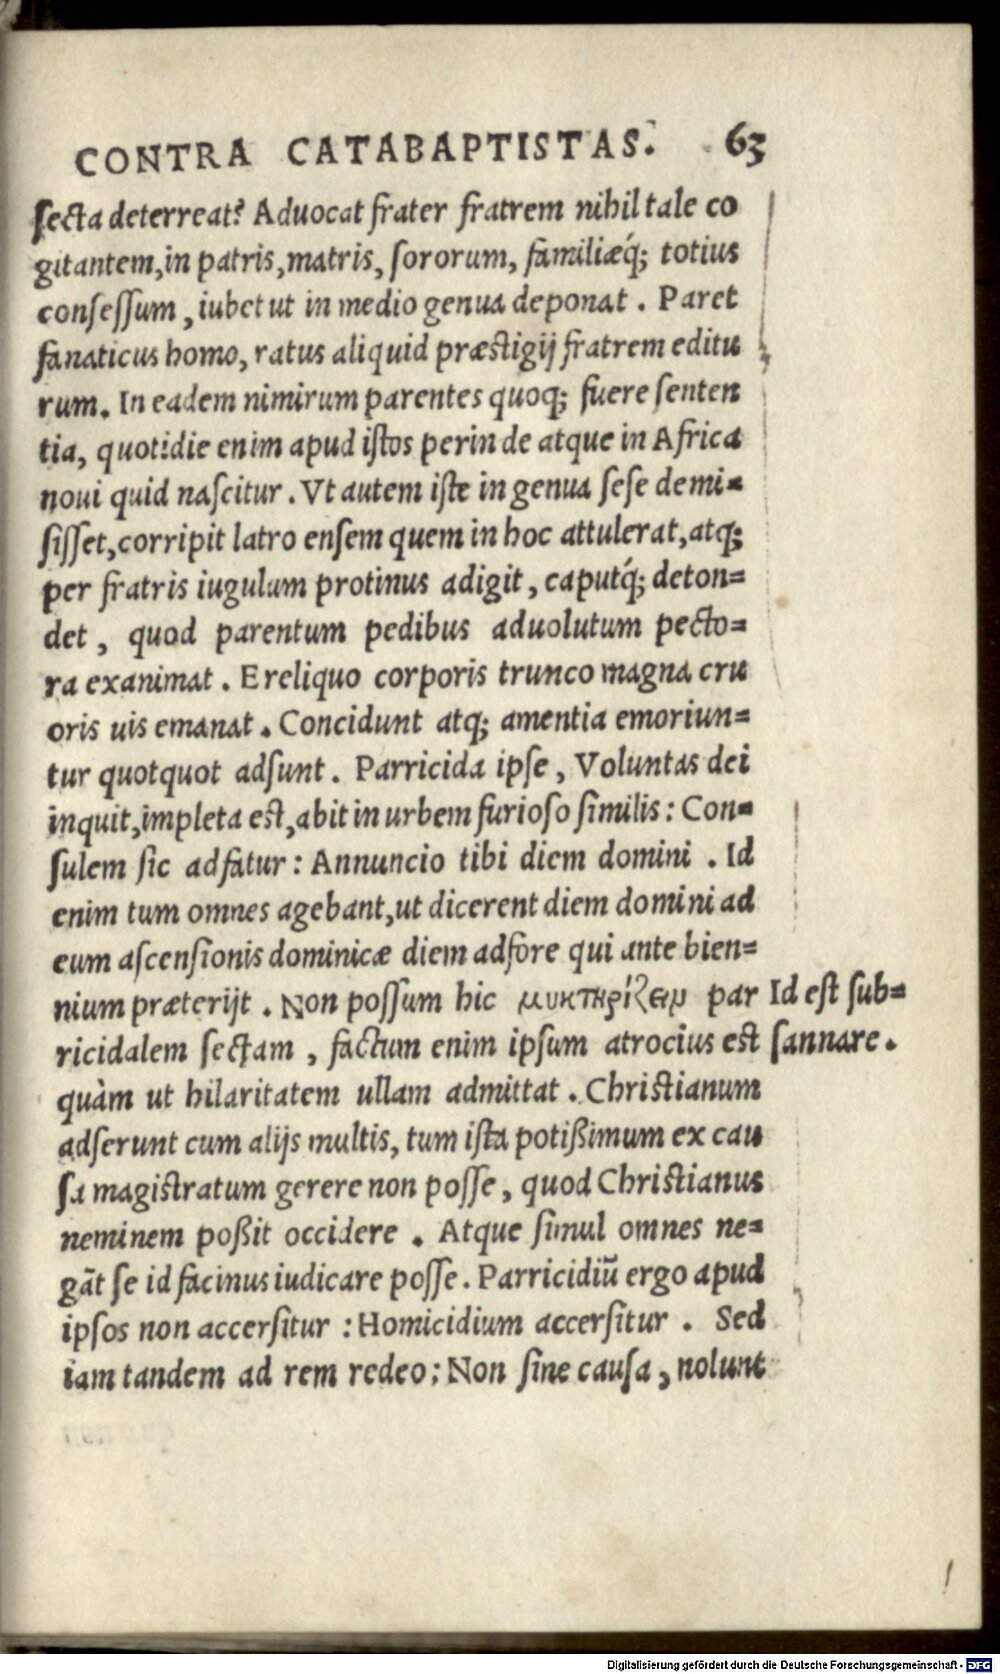 CONTRA CATABAPTISTAS. 63
secta deterreat? Aduocat frater fratrem nihil tale co
gitantem, in patris, matris, sororum, familiæq́; totius
consessum, iubet ut in medio genua deponat. Paret
fanaticus homo, ratus aliquid præstigij fratrem editu
rum. In eadem nimirum parentes quoq; fuere senten
tia, quotidie enim apud istos perinde atque in Africa
noui quid nascitur. Vt autem iste in genua sese demi=
sisset, corripit latro ensem quem in hoc attulerat, atq;
per fratris iugulum protinus adigit, caputq́; deton=
det, quod parentum pedibus aduolutum pecto=
ra exanimat. E reliquo corporis trunco magna cru
oris uis emanat. Concidunt atq; amentia emoriun=
tur quotquot adsunt. Parricida ipse, Voluntas dei
inquit, impleta est, abit in urbem furioso similis: Con=
sulem sic adfatur: Annuncio tibi diem domini. Id
enim tum omnes agebant, ut dicerent diem domini ad
eum ascensionis dominicæ diem adfore qui ante bien=
nium præterijt. Non possum hic μυκτηρίζειν par Id est sub=
ricidalem sectam, factum enim ipsum atrocius est sannare.
quàm ut hilaritatem ullam admittat. Christianum
adserunt cum alijs multis, tum ista potißimum ex cau
sa magistratum gerere non posse, quod Christianus
neminem poßit occidere. Atque simul omnes ne=
gāt se id facinus iudicare posse. Parricidiū ergo apud
ipsos non accersitur: Homicidium accersitur. Sed
iam tandem ad rem redeo: Non sine causa, nolunt
Digitalisierung gefördert durch die Deutsche Forschungsgemeinschaft - DFG